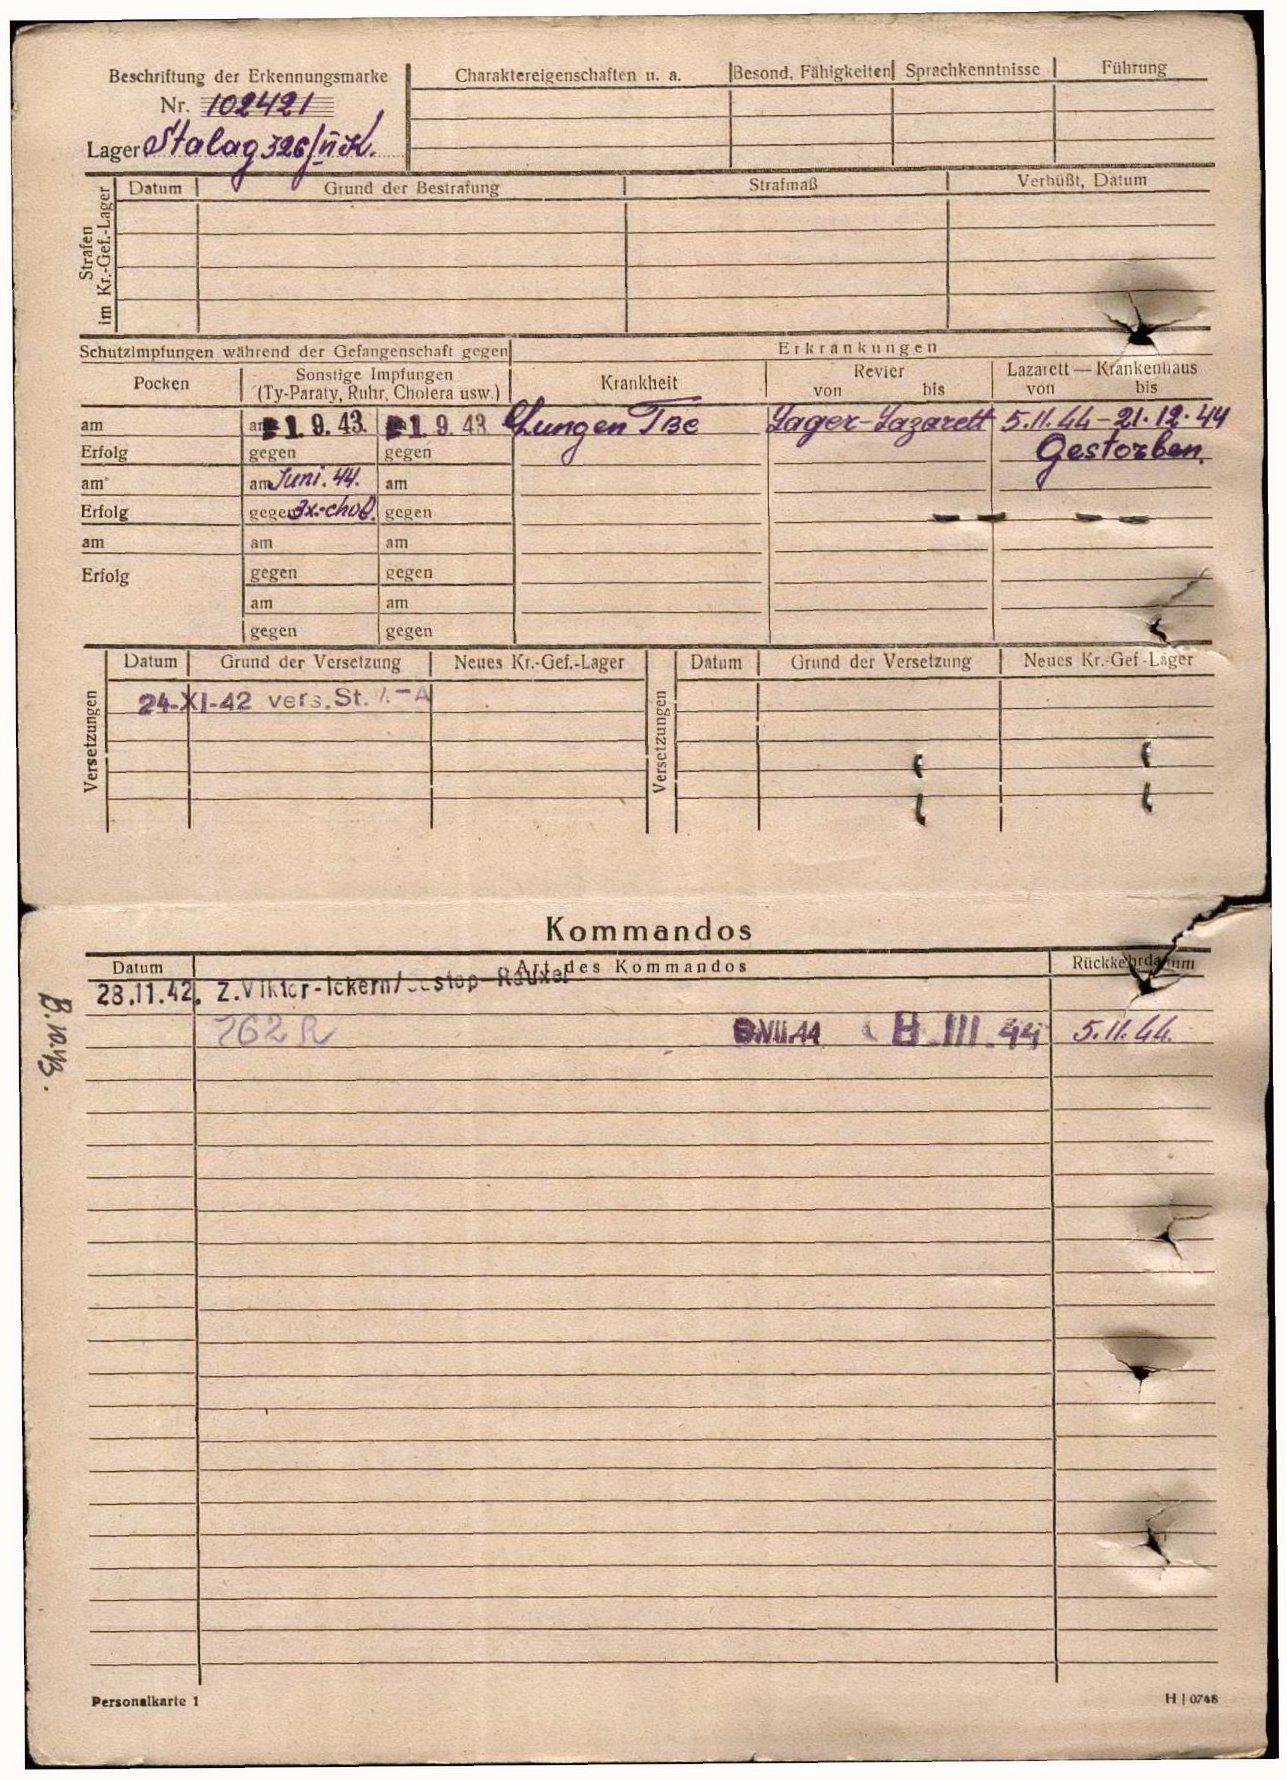 Beschriftung der Erkennungsmarke
Nr. 102421
Lager Stalag 326/VI K.
Charaktereigenschaften u. a. Besond. Fähigkeiten Sprachkenntnisse Führung
Strafen
im Kr.-Gef.-Lager
Datum Grund der Bestrafung Strafmaß Verbüßt, Datum
Schutzimpfungen während der Gefangenschaft gegen Erkrankungen
Pocken Sonstige Impfungen
(Ty-Paraty, Ruhr, Cholera usw.) Krankheit Revier
von bis Lazarett — Krankenhaus
von bis
am am 1. 9. 43. 1. 9. 43 Lungen Tbc Lager-Lazarett 5.11.44 – 21.12.44
Erfolg gegen gegen Gestorben.
am am Juni. 44. am
Erfolg gegen 3x-chol. gegen
am am am
Erfolg gegen gegen
am am
gegen gegen
Versetzungen
Datum Grund der Versetzung Neues Kr.-Gef.-Lager
24-XI-42 vers. St.
Versetzungen
Datum Grund der Versetzung Neues Kr.-Gef.-Lager
Kommandos
Datum Art des Kommandos Rückkehrdatum
28.11.42. Z. Viktor-Ickern/ Rauxel
762 R .VII.44 III.44 5.11.44.
Personalkarte 1
H | 0748